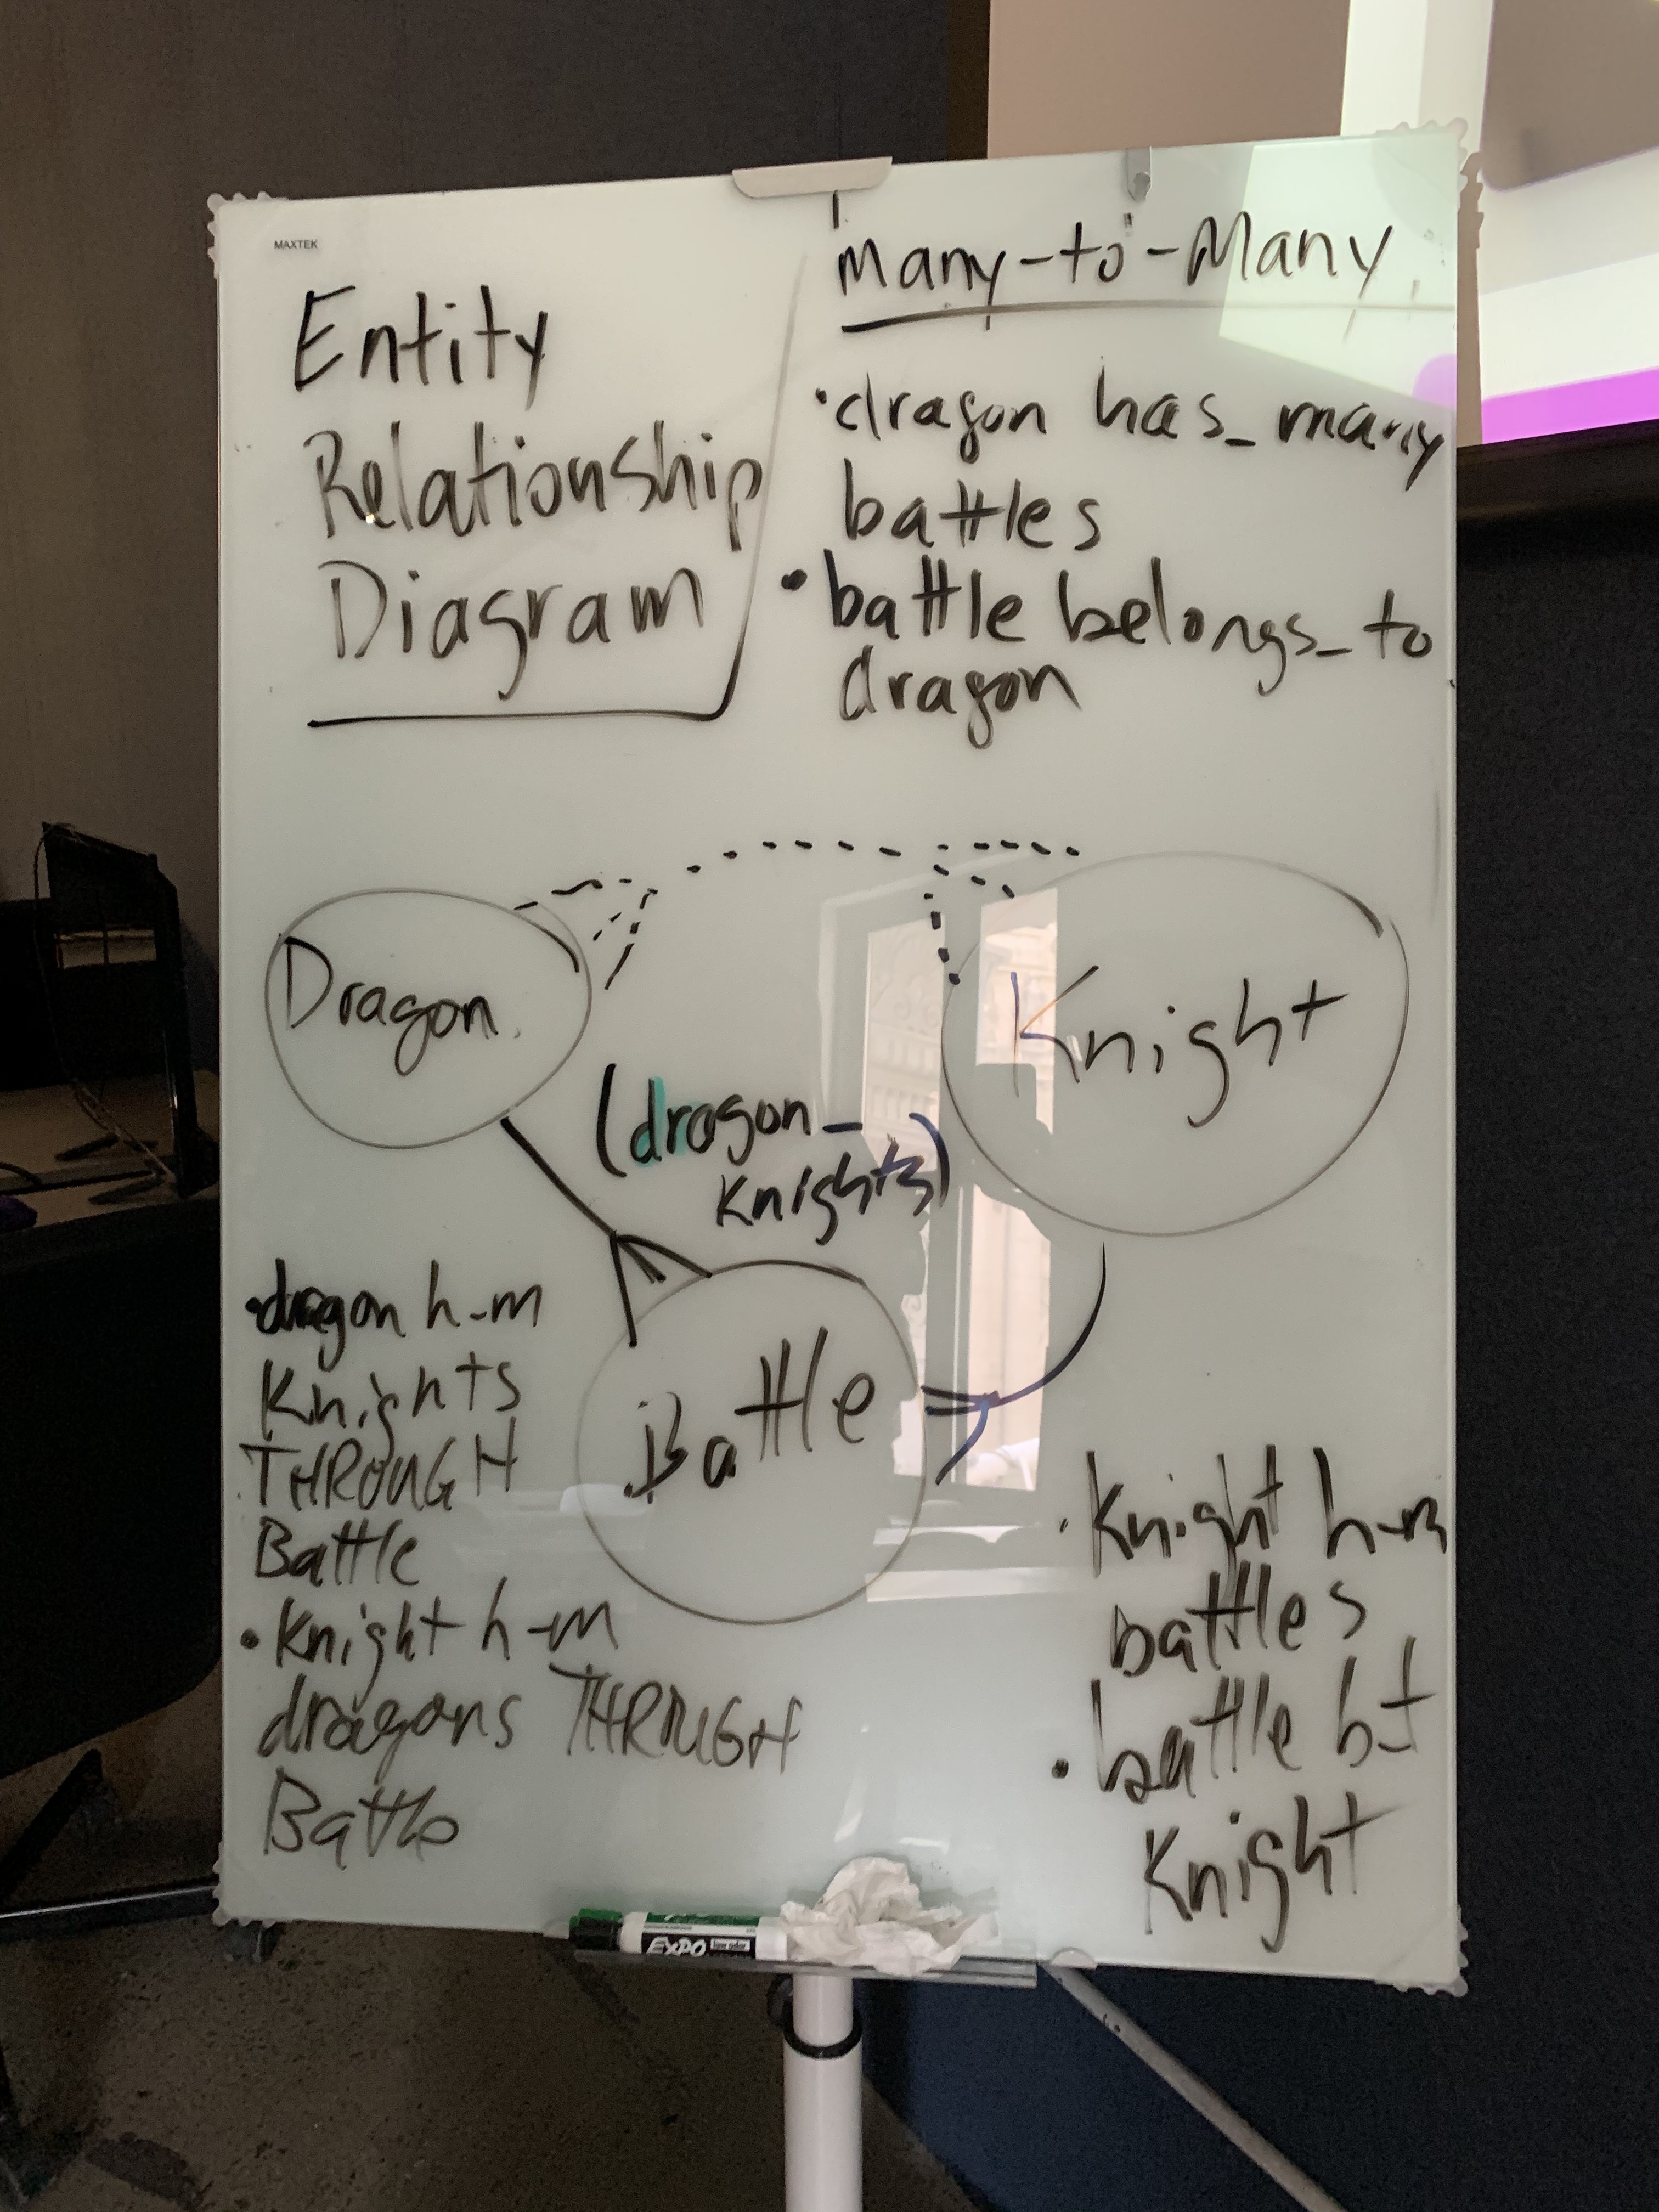 MAXTEK
Entity
Relationship
Diagram
Many-to-Many
•dragon has_many
battles
•battle belongs_to
dragon
Dragon
Knight
(dragon_
knights)
Battle
•dragon h-m
Knights
THROUGH
Battle
•Knight h-m
dragons THROUGH
Battle
•Knight h-m
battles
•battle b_t
Knight
EXPO
low odor